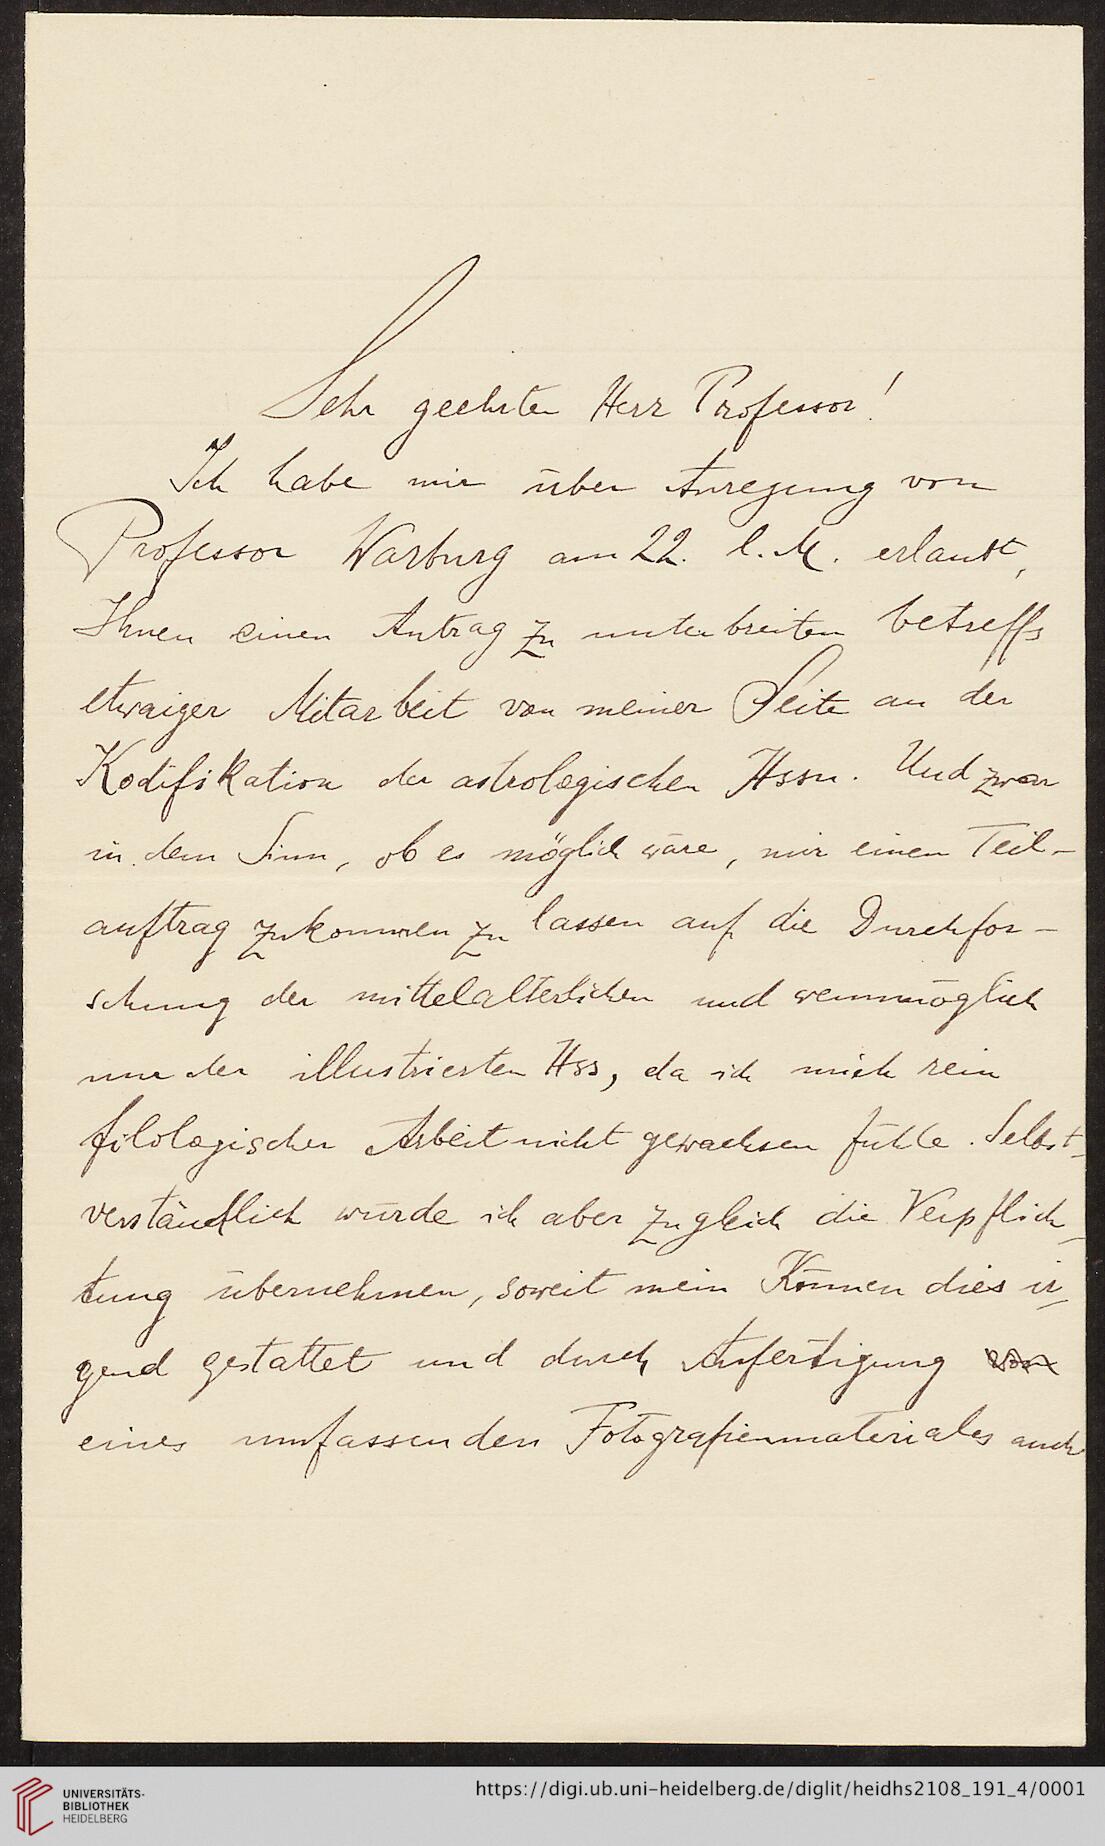 Sehr geehrter Herr Professor!
Ich habe mir über Anregung von
Professor Warburg am 22. l. M. erlaubt,
Ihnen einen Antrag zu unterbreiten betreffs
etwaiger Mitarbeit von meiner Seite an der
Kodifikation der astrologischen Hssn. Und zwar
in dem Sinn, ob es möglich wäre, mir einen Teil-
auftrag zukommen zu lassen auf die Durchfor-
schung der mittelalterlichen und wenmöglich
nur der illustrierten Hss, da ich mich rein
filologischer Arbeit nicht gewachsen fühle. Selbst-
verständlich würde ich aber zugleich die Verpflich-
tung übernehmen, soweit mein Können dies ir-
gend gestattet und durch Anfertigung von
eines umfassenden Fotografienmateriales auch
UNIVERSITÄTS-
BIBLIOTHEK
HEIDELBERG
https://digi.ub.uni-heidelberg.de/diglit/heidhs2108_191_4/0001